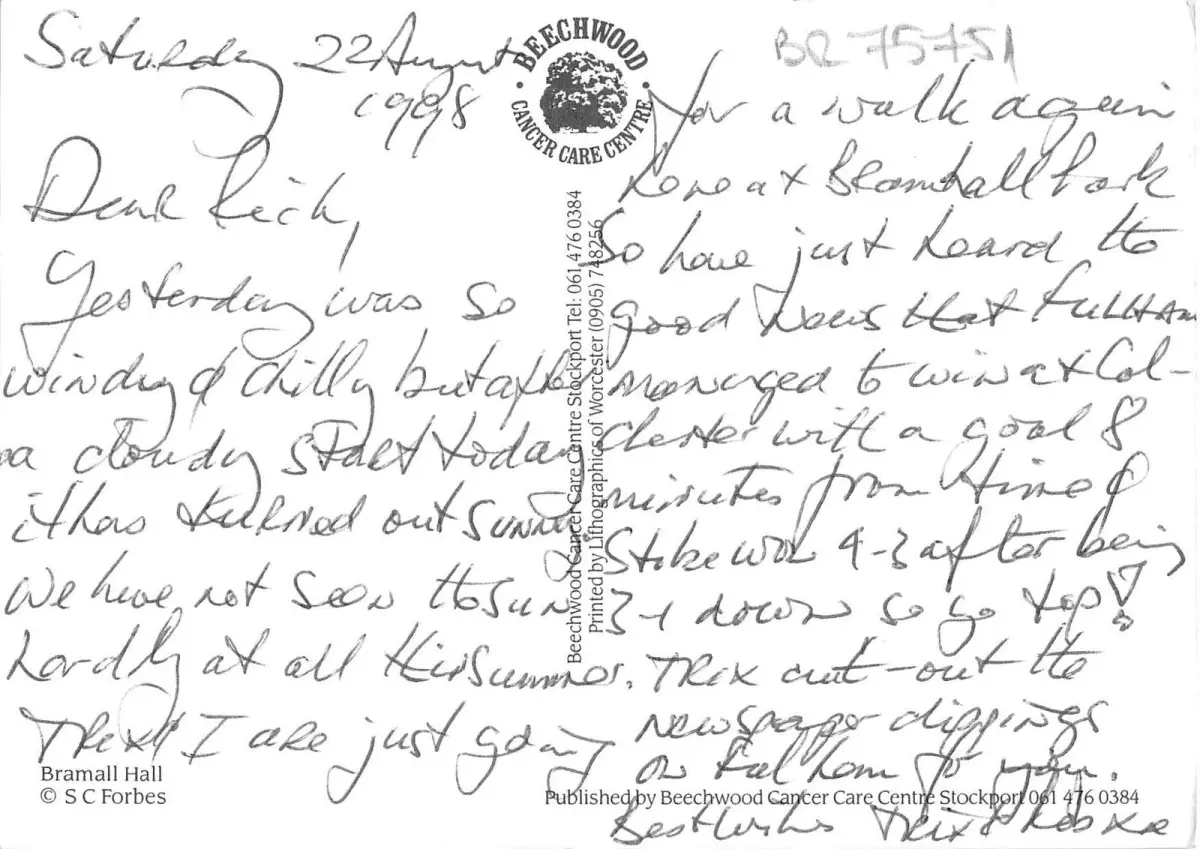 Saturday 22 August
1998
Dear Rich,
Yesterday was so
windy & chilly but after
a cloudy start today
it has turned out sunny.
We have not seen the sun
hardly at all this summer.
Trix & I are just going
for a walk again
here at Bramhall Park
So have just heard the
good news that FULHAM
managed to win at Col-
chester with a goal 8
minutes from time &
Stoke won 4-3 after being
3-1 down so go top!
Trix cut-out the
newspaper clippings
on Fulham for you.
Best wishes Trix &
BR 75751
BEECHWOOD
CANCER CARE CENTRE
Beechwood Cancer Care Centre Stockport Tel: 061 476 0384
Printed by Lithographics of Worcester (0905) 748256
Bramall Hall
© S C Forbes
Published by Beechwood Cancer Care Centre Stockport 061 476 0384